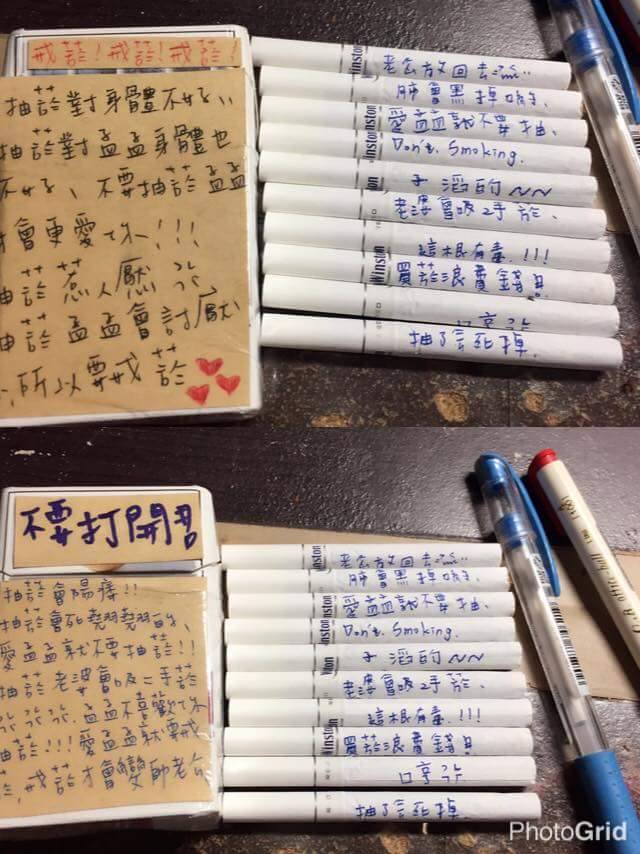 戒菸!戒菸!戒菸!
抽菸對身體不好、
抽菸對孟孟身體也
不好、不要抽菸孟孟
才會更愛你!!!
抽菸惹人厭
抽菸孟孟會討厭
,所以要戒菸
Winston 老公放回去
肺會黑掉喔、
Winston 愛孟孟就不要抽、
Winston Don't. Smoking.
滔的~~
老婆會吸2手菸、
這根有毒.!!!
Winston 買菸浪費錢
抽了會死掉.
不要打開
抽菸會陽痿!!
抽菸會死翹翹的、
愛孟孟就不要抽菸!!
抽菸老婆會吸二手菸
孟孟不喜歡你
抽菸!!!愛孟孟就要戒
菸,戒菸才會變帥老公
Winston 老公放回去
肺會黑掉喔、
Winston 愛孟孟就不要抽、
Winston Don't. Smoking.
滔的~~
老婆會吸2手菸、
這根有毒.!!!
Winston 買菸浪費錢
抽了會死掉.
PhotoGrid